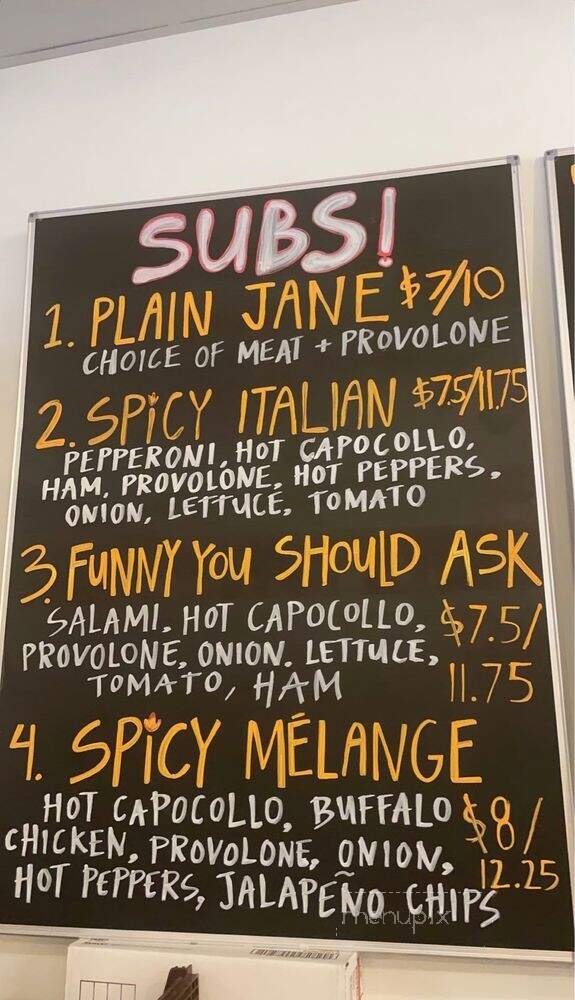 SUBS!
1. PLAIN JANE $7/10
CHOICE OF MEAT + PROVOLONE
2. SPiCY ITALIAN $7.5/11.75
PEPPERONI, HOT CAPOCOLLO,
HAM, PROVOLONE, HOT PEPPERS,
ONION, LETTUCE, TOMATO
3. FUNNY YOU SHOULD ASK
SALAMI, HOT CAPOCOLLO, $7.5/
PROVOLONE, ONION. LETTUCE, 11.75
TOMATO, HAM
4. SPiCY MÉLANGE
HOT CAPOCOLLO, BUFFALO $8/
CHICKEN, PROVOLONE, ONION, 12.25
HOT PEPPERS, JALAPEÑO CHIPS
menupix